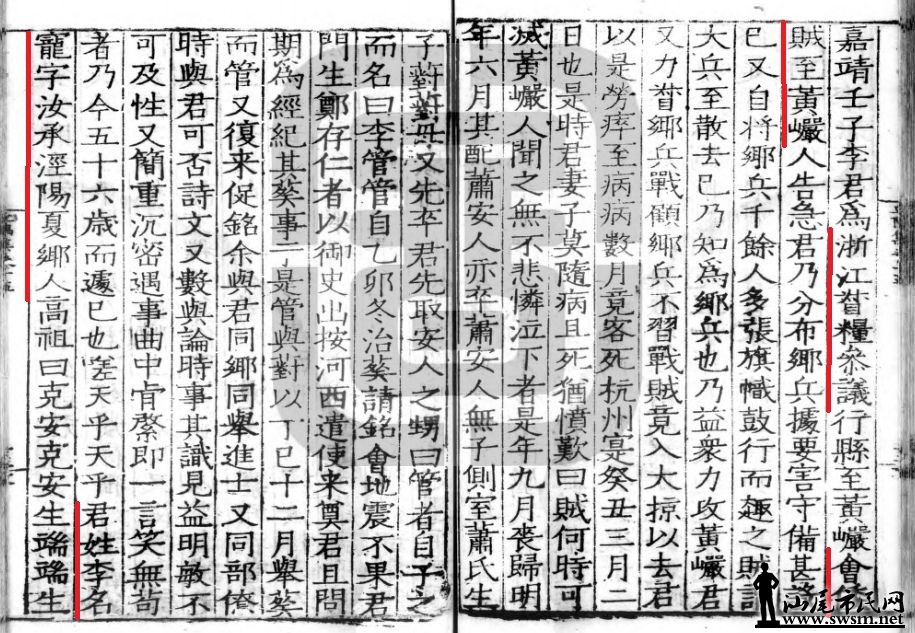 嘉靖壬子李君爲浙江督糧叅議行縣至黃巗會
賊至黃巗人告急君乃分布鄉兵據要害守備甚
已又自將鄉兵千餘人多張旗幟鼓行而趣之賊
大兵至散去已乃知爲鄉兵也乃益衆力攻黃巗君
又力督鄉兵戰顧鄉兵不習戰賊竟入大掠以去君
以是勞瘁至病病數月竟客死杭州寔癸丑三月二
日也是時君妻子莫隨病且死猶憤歎曰賊何時可
滅黃巗人聞之無不悲憐泣下者是年九月喪歸明
年六月其配蕭安人亦卒蕭安人無子側室蕭氏生
子葑葑母又先卒君先取安人之甥曰管者自子之
而名曰李管管自乙卯冬治葵請銘會地震不果君
門生鄭存仁者以御史出按河西遣使来奠君且問
期爲經紀其葵事于是管與葑以丁巳十二月舉葵
而管又復来促銘余與君同鄉同舉進士又同部僚
時與君可否詩文又數與論時事其識見益明敏不
可及性又簡重沉密遇事曲中肯綮即一言笑無苟
者乃今五十六歳而遽已也寔天乎天乎君姓李名
寵字汝承涇陽夏鄉人高祖曰克安克安生端端生
汕尾市民网
www.swsm.net